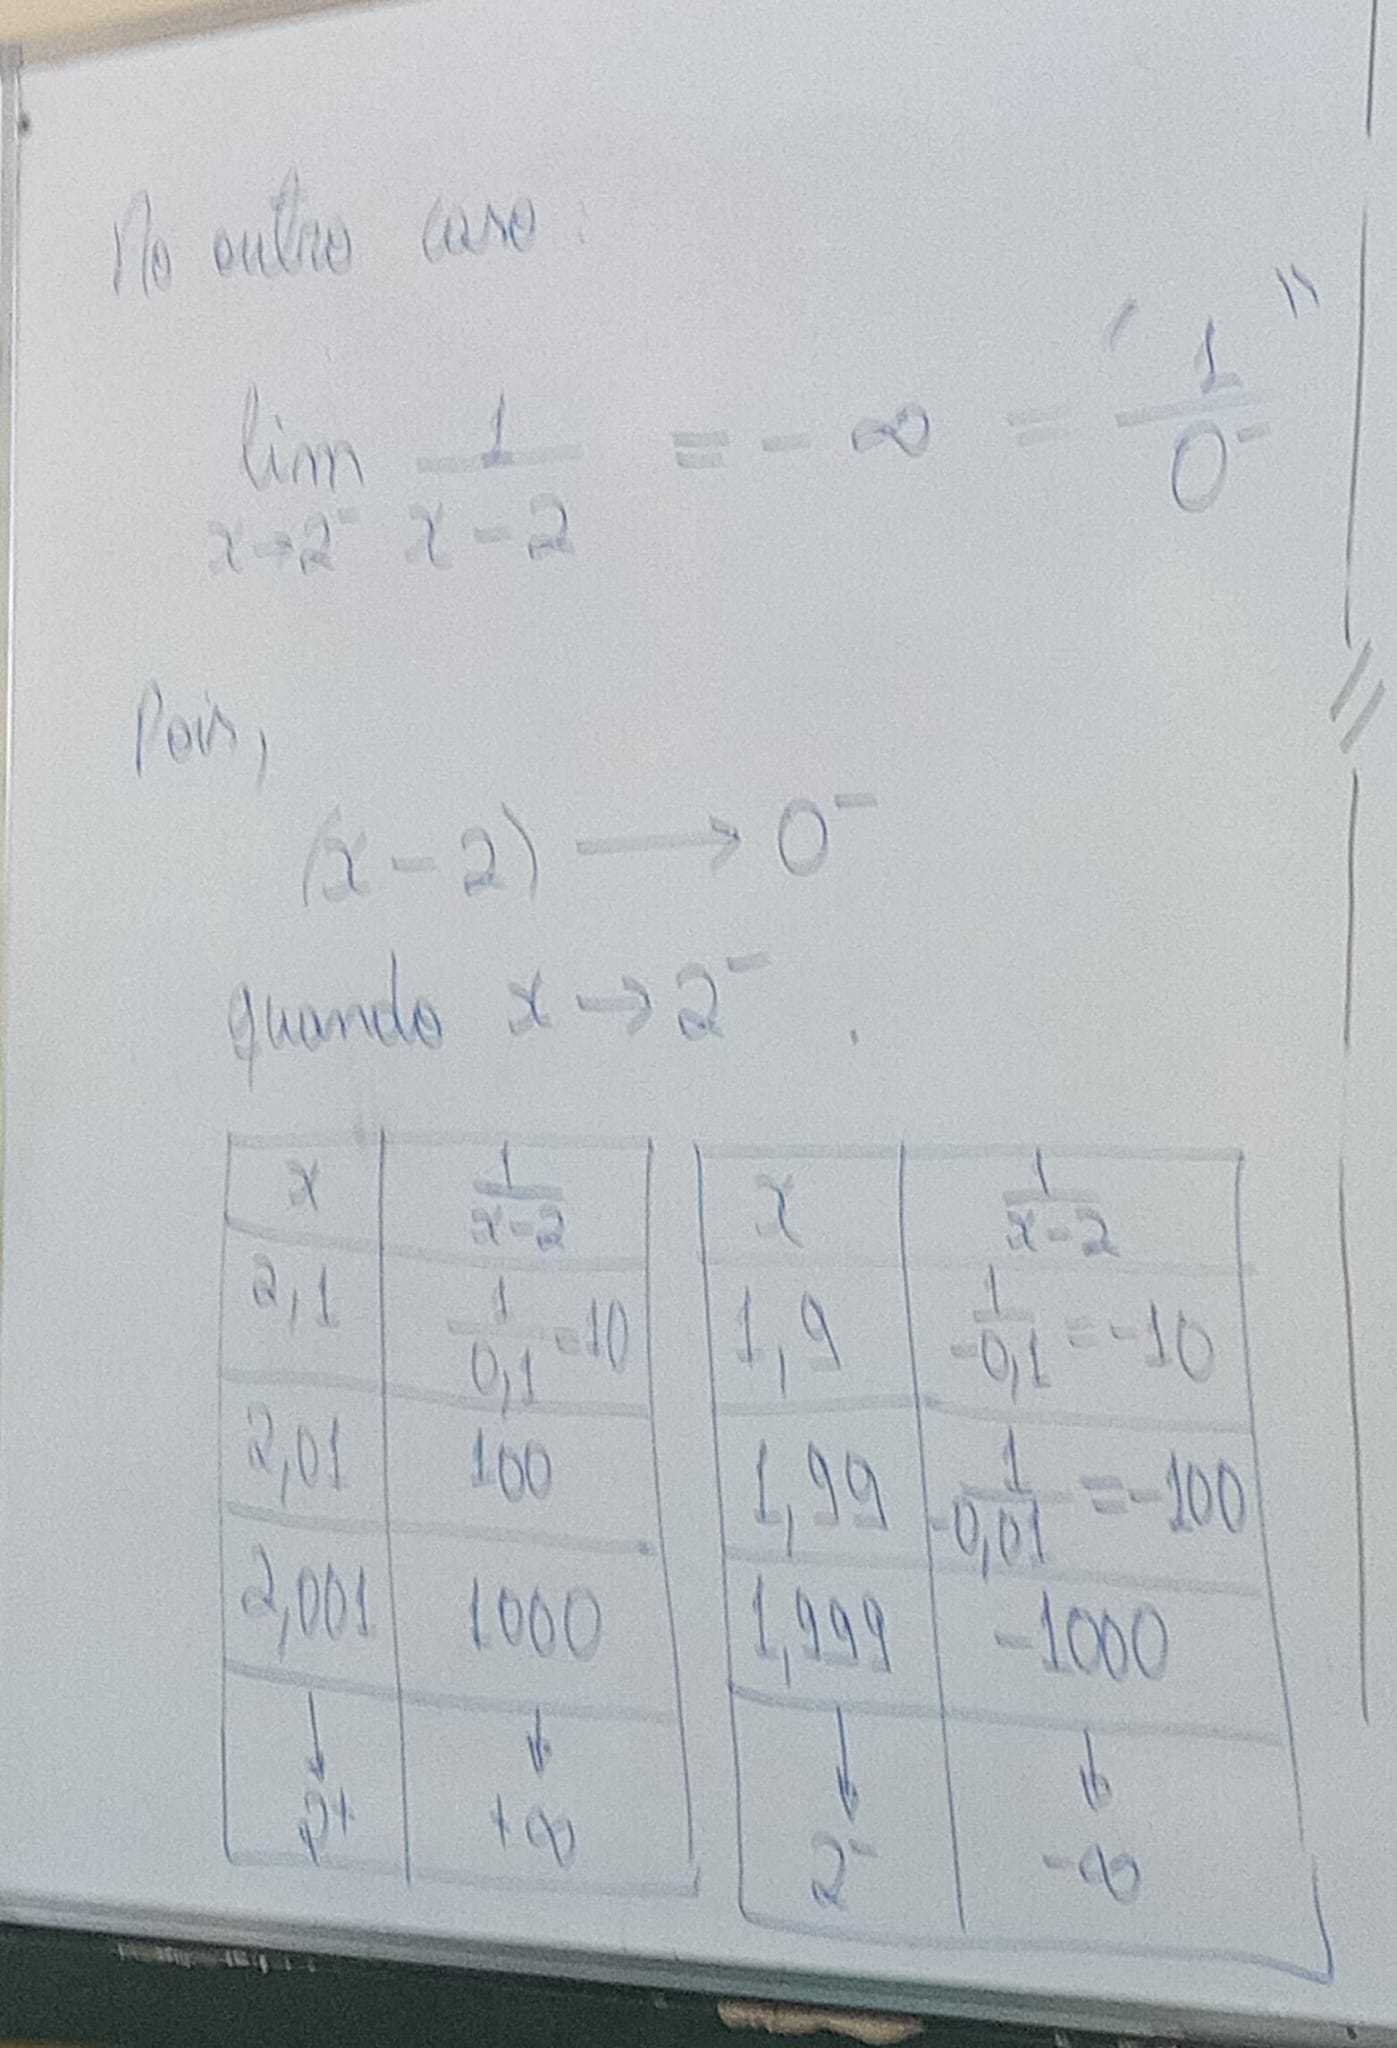 No outro caso:
lim 1/(x-2) = -∞ = "1/0⁻"
x→2⁻
Pois,
(x-2) ⟶ 0⁻
quando x→2⁻.
x | 1/(x-2)
2,1 | 1/0,1 =10
2,01 | 100
2,001 | 1000
↓ | ↓
2⁺ | +∞
x | 1/(x-2)
1,9 | 1/-0,1 = -10
1,99 | 1/-0,01 = -100
1,999 | -1000
↓ | ↓
2⁻ | -∞